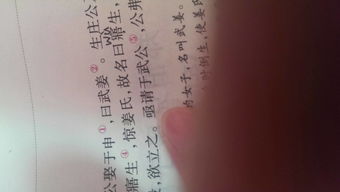 公娶于申①，曰武姜②。生庄公
寤生④，惊姜氏，故名曰寤生，
，欲立之。亟请于武公⑤，公弗
的女子，名叫武姜。
时倒生，使姜氏